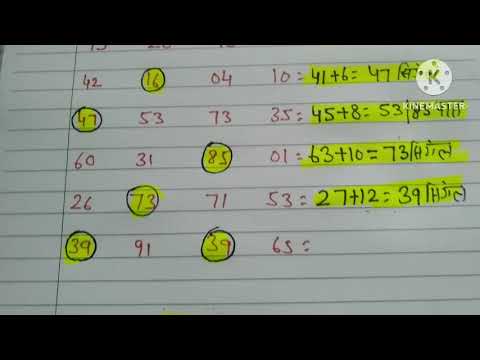 42 16 04 10 = 41+6 = 47
KINEMASTER
47 53 73 35 = 45+8 = 53
60 31 85 01 = 63+10 = 73 सिंगल
26 73 71 53 = 27+12 = 39 सिंगल
39 91 39 65 =